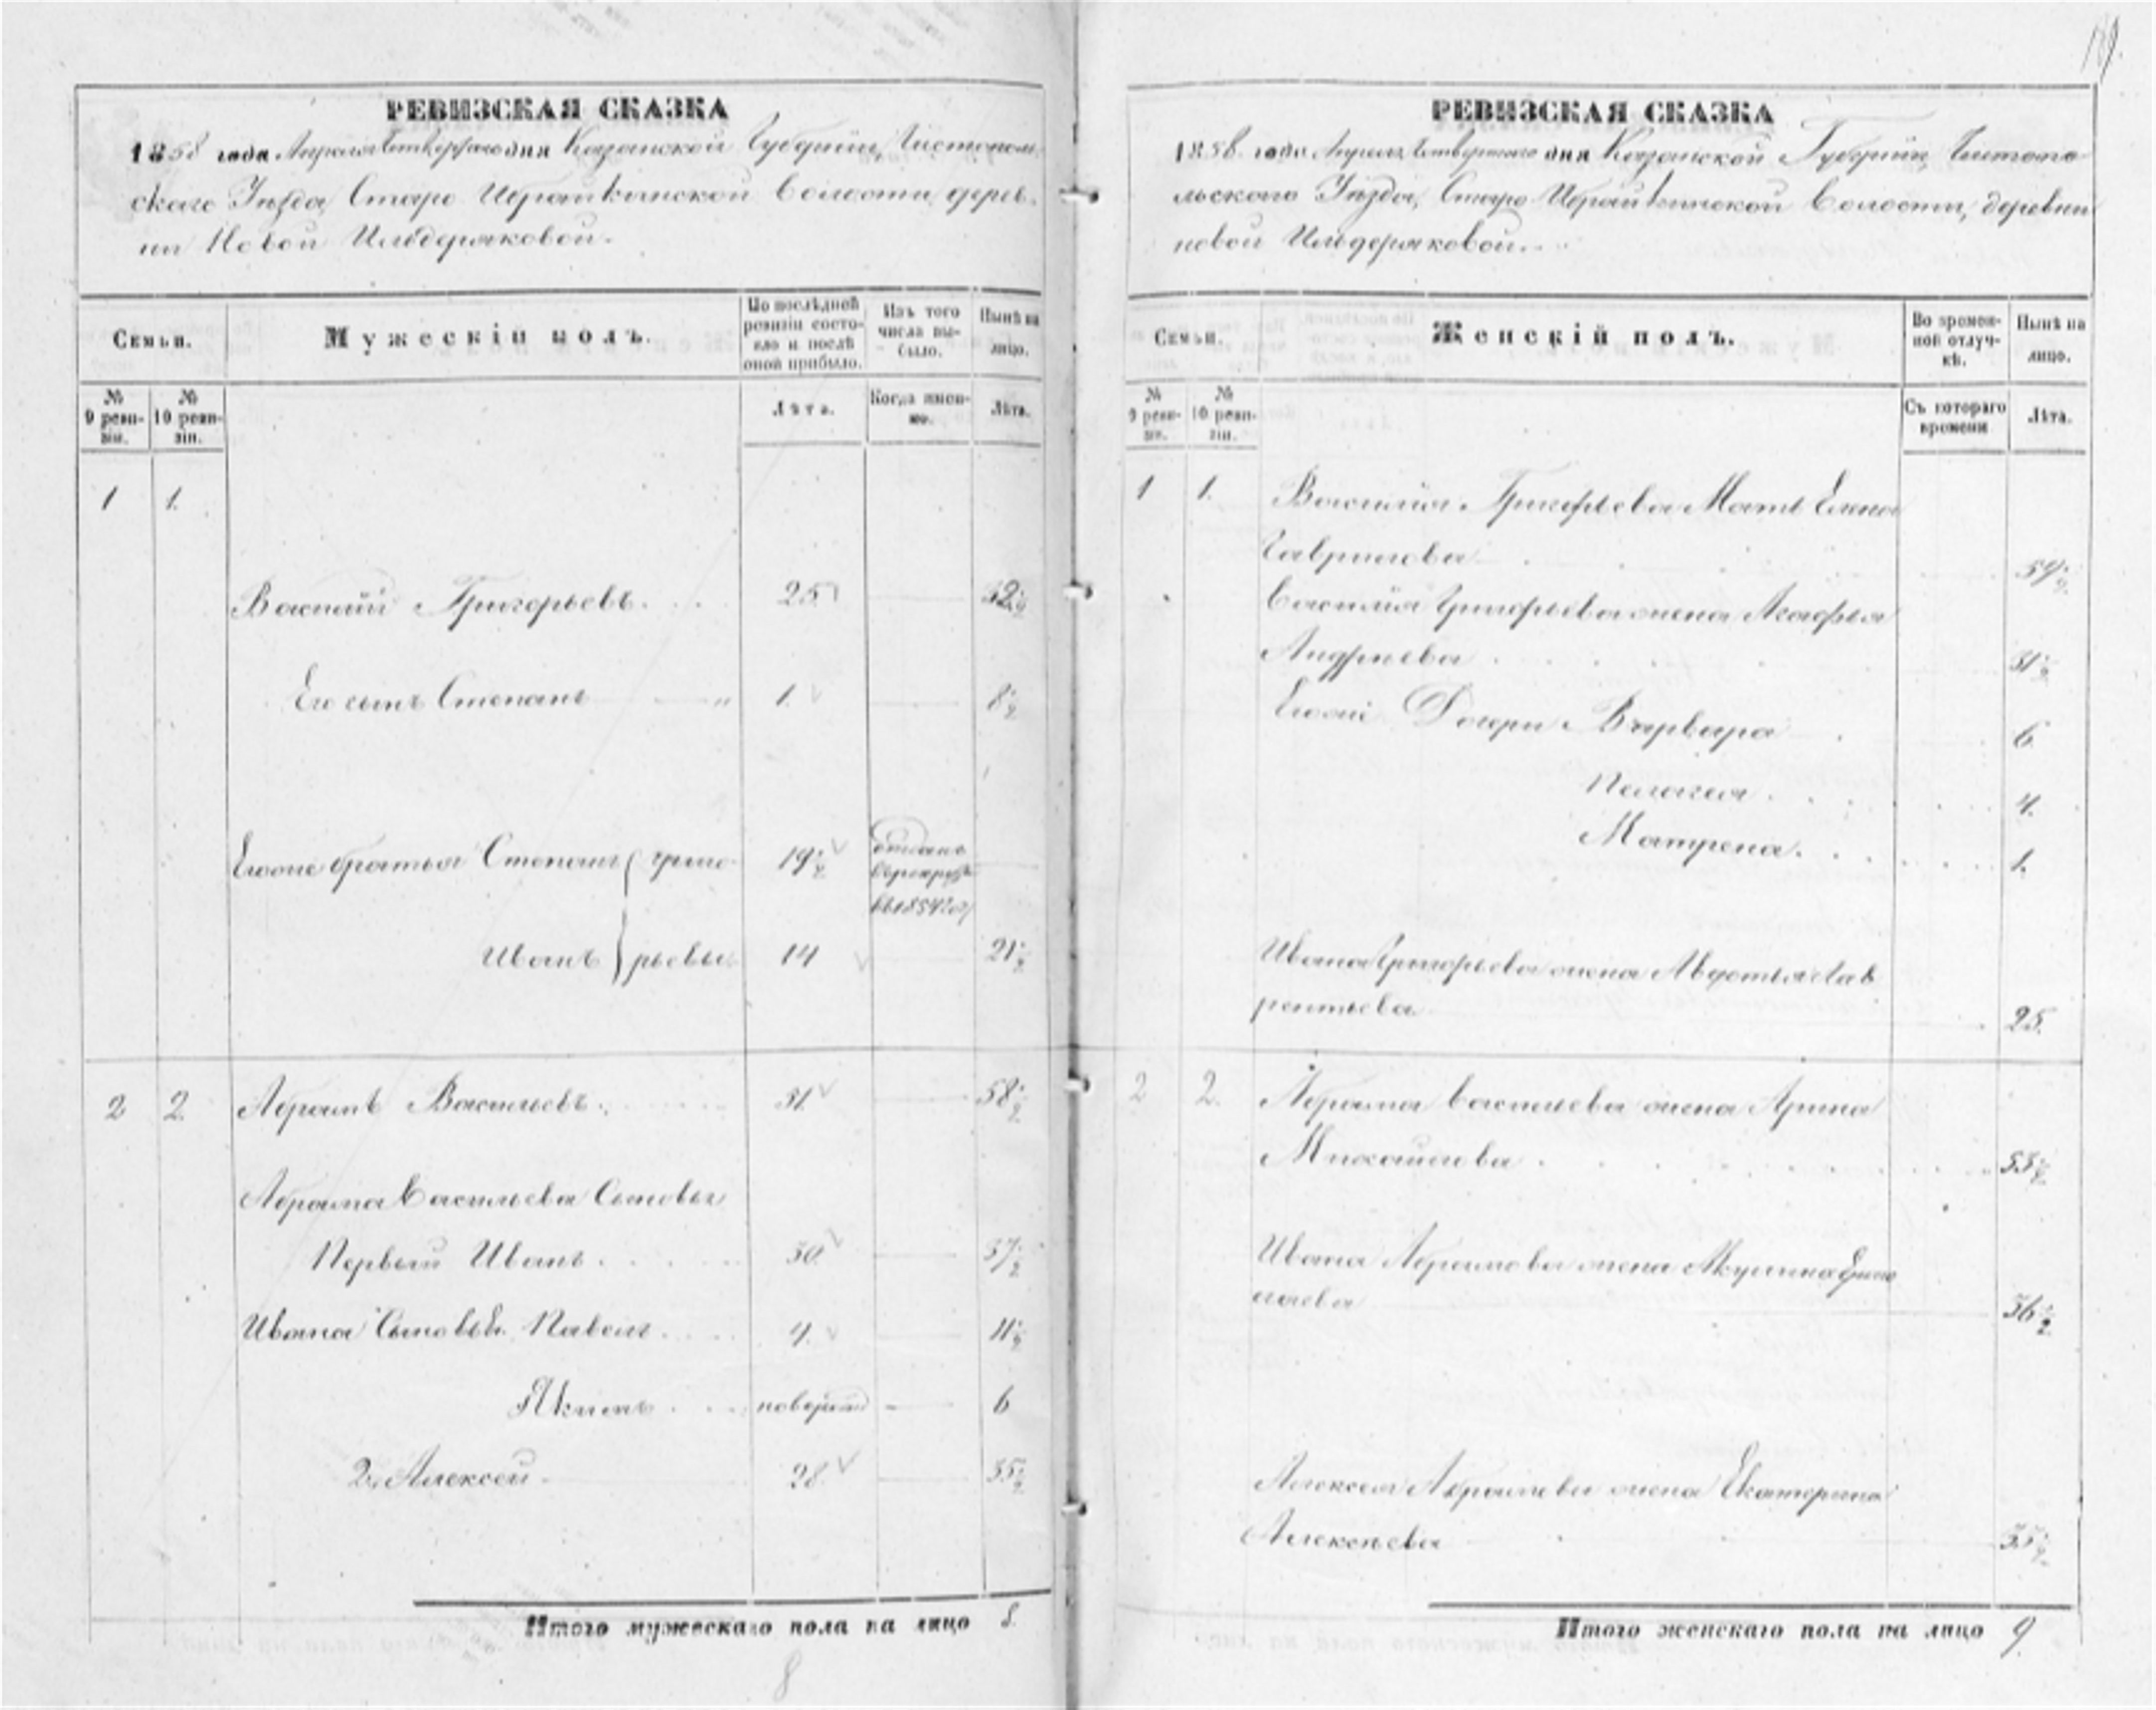 РЕВИЗСКАЯ СКАЗКА
1858 года Апреля Четвертаго дня Казанской Губерніи, Чистополь-
скаго Уѣзда, Старо Ибрайкинской Волости, дерев-
ни Новой Ильдеряковой.
Семьи.
Мужескій полъ.
По послѣдней ревизіи состо-
яло и послѣ оной прибыло.
Изъ того числа вы-
было.
Нынѣ на лицо.
№ 9 реви-
зіи.
№ 10 реви-
зіи.
Лѣта.
Когда имен-
но.
Лѣта.
1 1.
Василій Григорьевъ. 25 32½
Его сынъ Степанъ 1. 8½
Егоже братья Степанъ Григо- 19½ отданъ
въ рекруты
въ 1854 год
Иванъ рьевы 14 21½
2 2 Абрамъ Васильевъ. 51. 58½
Абрама Васильева Сыновья
Первый Иванъ. 30. 37½
Ивана Сыновья Павелъ 4. 11½
Якимъ 6
2. Алексей 28. 35½
Итого мужескаго пола на лицо 8.
8
РЕВИЗСКАЯ СКАЗКА
1858 года Апреля Четвертаго дня Казанской Губерніи, Чистопо-
льскаго Уѣзда, Старо Ибрайкинской Волости, деревни
новой Ильдеряковой.
Семьи.
Женскій полъ.
Во времен-
ной отлуч-
кѣ.
Нынѣ на лицо.
№ 9 реви-
зіи.
№ 10 реви-
зіи.
Съ котораго времени
Лѣта.
1 1. Василія Григорьева Мать Елена
Гаврилова 59½
Василія Григорьева жена Агафья
Андреева 31½
Егоже Дочери Варвара 6.
Пелагея 4.
Матрена. 1.
Ивана Григорьева жена Авдотья Лав
рентьева 25.
2 2. Абрама Васильева жена Арина
Михайлова 55½
Ивана Абрамова жена Акулина
36½
Алексея Абрамова жена Екатерина
Алексеева 35½
Итого женскаго пола на лицо 9.